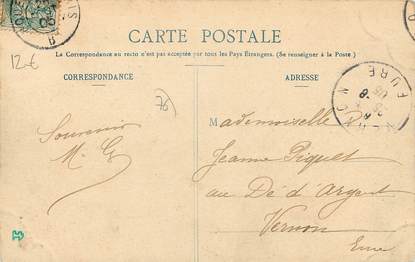 CARTE POSTALE
La Correspondance au recto n'est pas acceptée par tous les Pays Étrangers. (Se renseigner à la Poste.)
12 €
CORRESPONDANCE
ADRESSE
76
Souvenir
M. G
Mademoiselle
Jeanne Piquet
au Dé d'Argent
Vernon
Eure
EURE